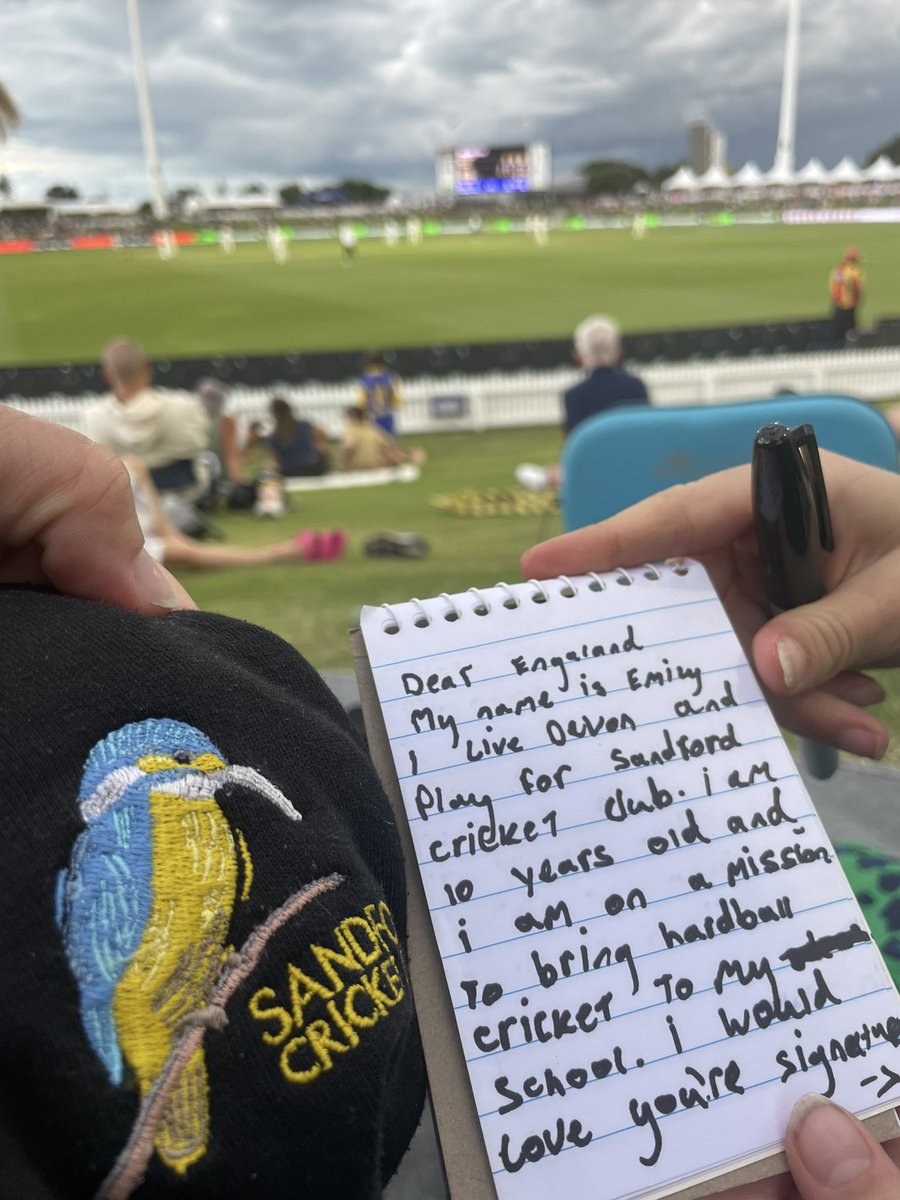 Dear Engaland
My name is Emily
I Live Devon and
Play for Sandford
cricket club. i am
10 years old and
i am on a mission
To bring hardball
cricket To My
school. i would
love you're signature
->
SANDFO
CRICKE